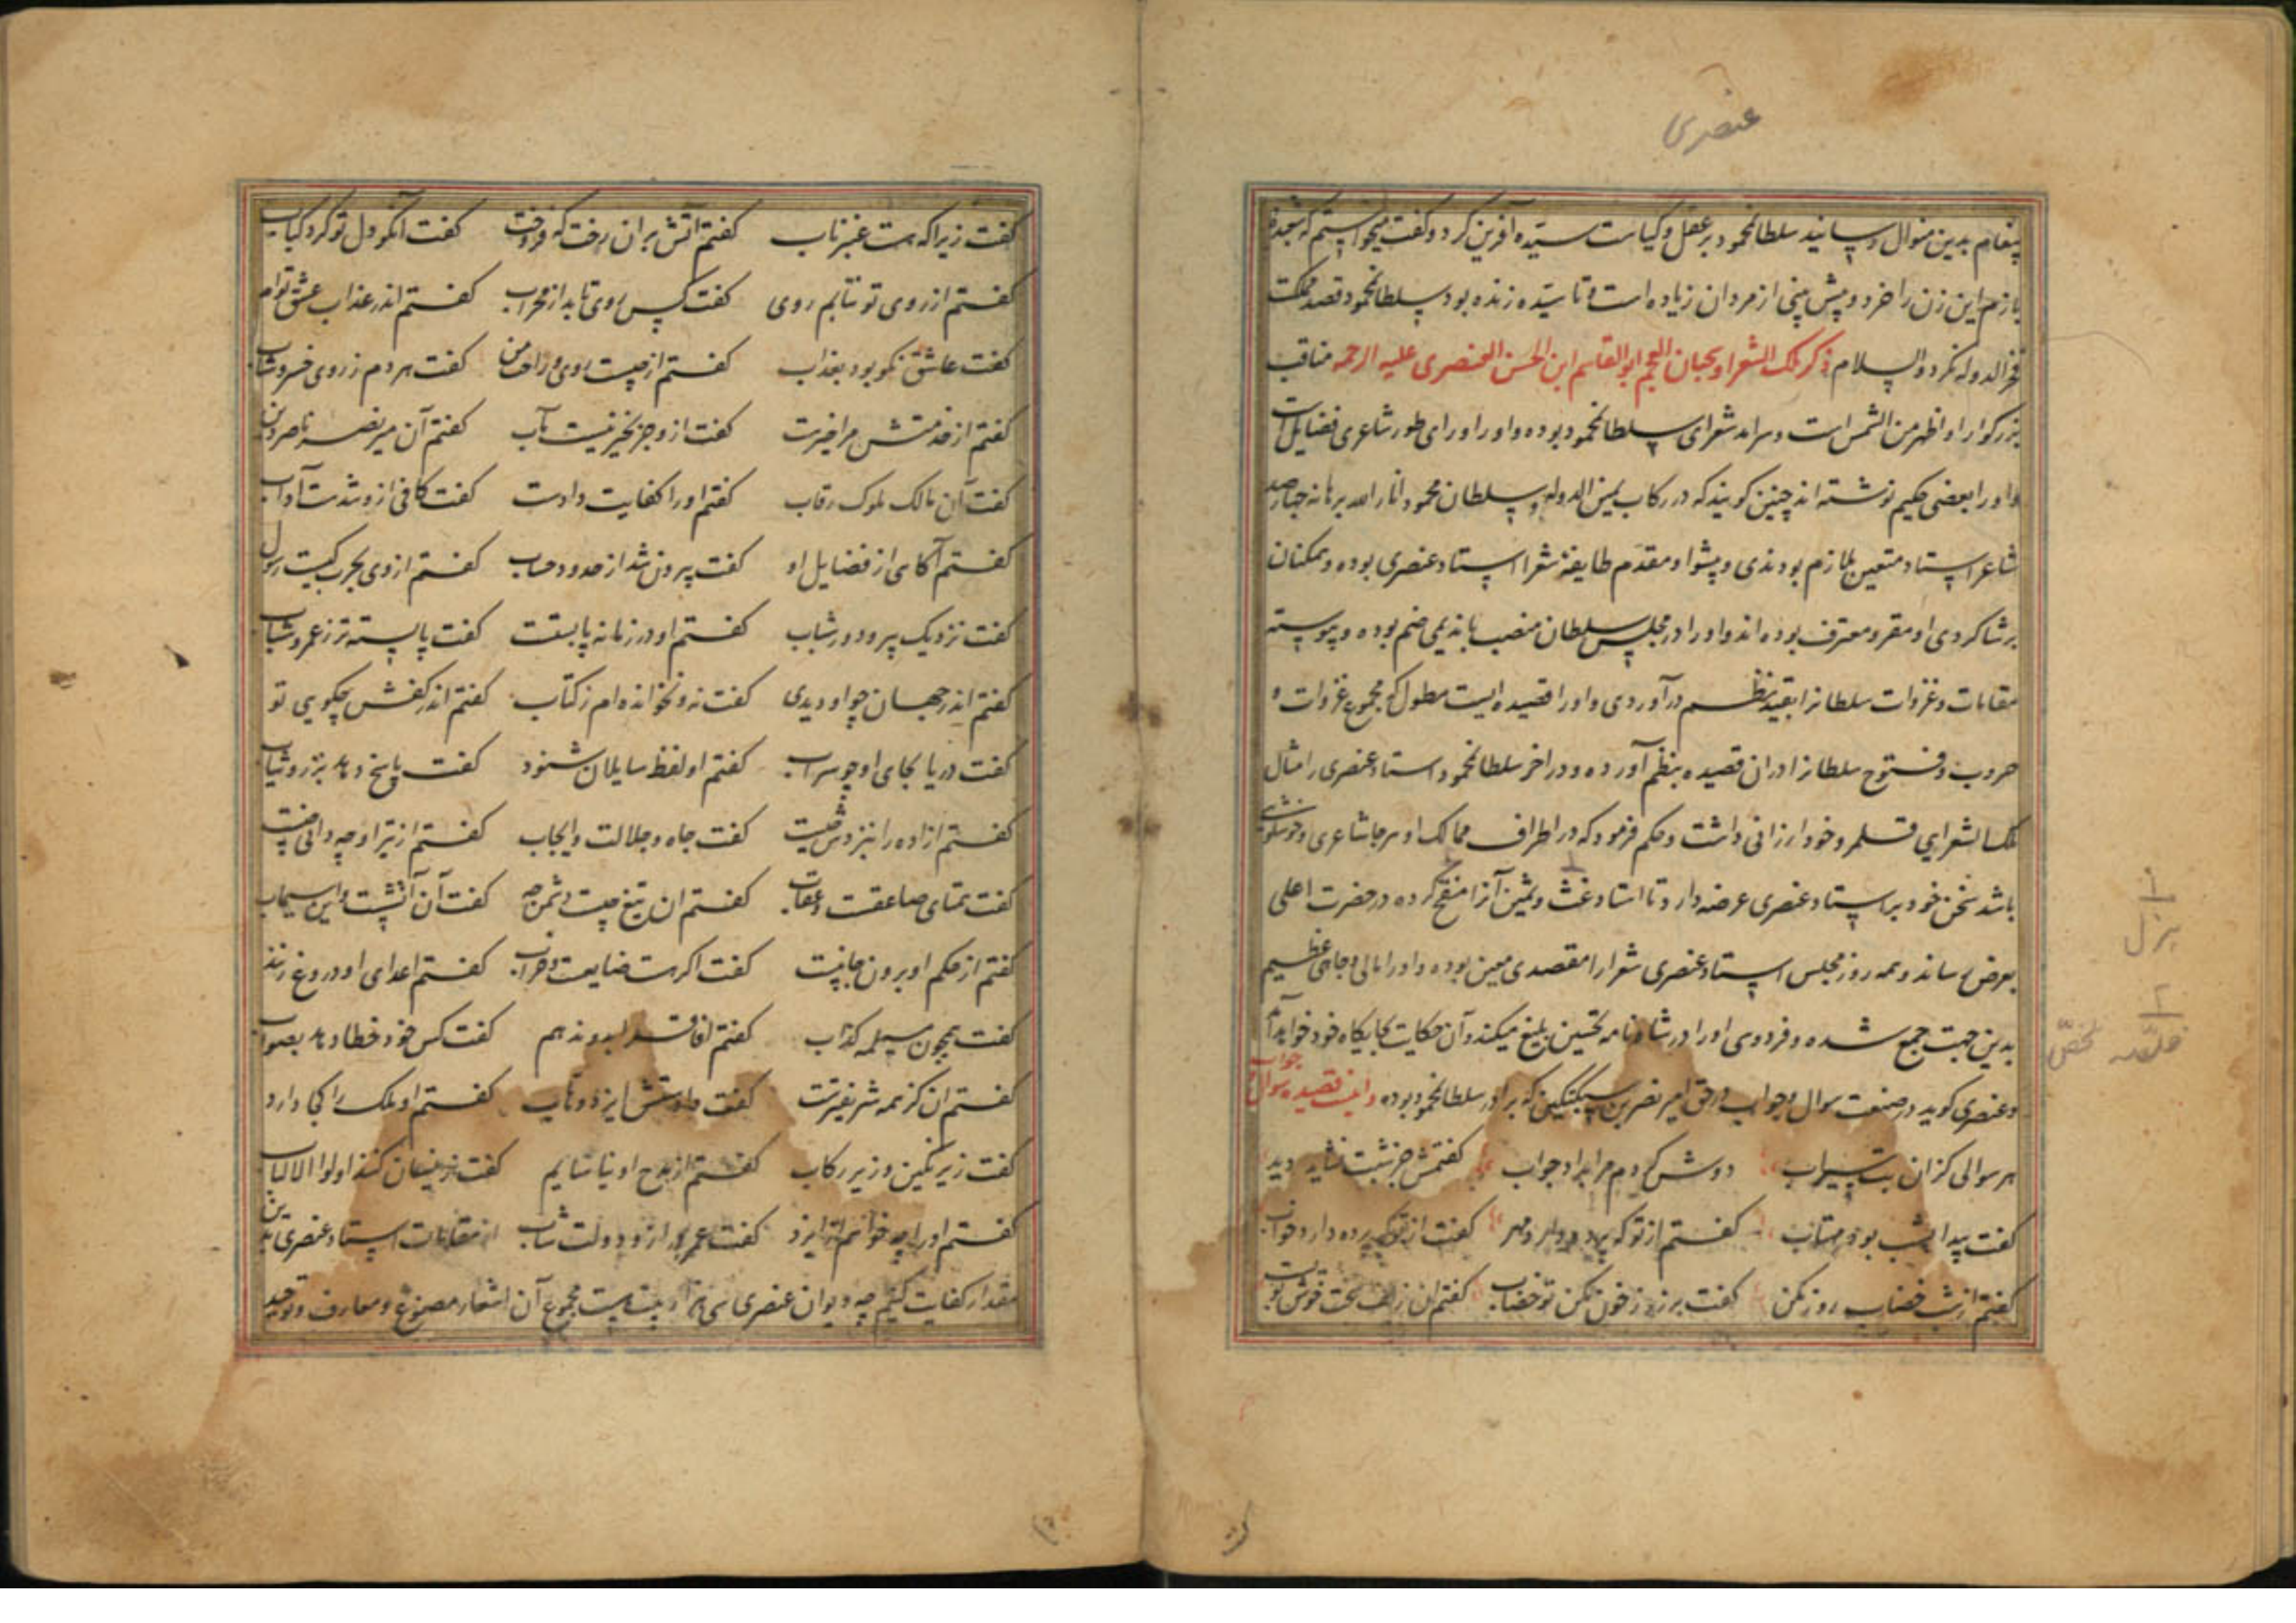 عنصری
پیغام بدین منوال رسانید سلطان محمود بر عقل و کیاست سیده آفرین کرد و گفت میخواستم که شعبده
بازم این زن را خرد و پیش بینی از مردان زیاده است و تا سیده زنده بود سلطان محمود قصد مملکت
فخر الدوله نکرد والسلام ذکر ملک الشعرا ابو القاسم ابن الحسن العنصری علیه الرحمه مناقب
بزرگوار او اظهر من الشمس است و سرامد شعرای سلطان محمود بوده و او را ورای طور شاعری فضایل است
و او را بعضی حکیم نوشته اند چنین کویند که در رکاب یمین الدوله سلطان محمود انار الله برهانه چهارصد
شاعر استاد متعین ملازم بودندی و پیشوا و مقدم طایفه شعرا استاد عنصری بوده و همکنان
بر شاکردی او مقر و معترف بوده اند و او را در مجلس سلطان منصب با ندیمی ضم بوده و پیوسته
مقامات و غزوات سلطان را بقید نظم در آوردی و او را قصیده ایست مطول که مجموع غزوات و
حروب و فتوح سلطان را دران قصیده بنظم آورده و در اخر سلطان محمود استاد عنصری را مثال
ملک الشعرایی قلمرو خود ارزانی داشت و حکم فرمود که در اطراف ممالک او هر جا شاعری و خوشگوی
باشد سخن خود بر استاد عنصری عرضه دارد تا استاد غث و ثمین آنرا منقح کرده در حضرت اعلی
بعرض رساند و همه روز مجلس استاد عنصری شعرا را مقصدی معین بوده و او را مالی و جاهی عظیم
بدین جهت جمع شده و فردوسی او را در شاه نامه تحسین بلیغ میکند و آن حکایت بجایکاه خود خواهد آمد
و عنصری کوید در صنعت سوال و جواب در حق امیر نصر بن سبکتکین که برادر سلطان محمود بوده و این قصیده سوال جواب
هر سوالی کزان بت سیراب دوش کردم مرا بداد جواب کفتمش جز شبت نشاید دید
کفت پیدا بشب بود مهتاب کفتم از تو که برد دارد مهر کفت از تو که برده دارد خواب
کفتم از شب خضاب روز مکن کفت بر زد ز خون مکن تو خضاب کفتم ان زلف سخت خوش بوست
کفت زیرا که هست عنبر ناب کفتم آتش بران رخت که فروخت کفت آنکو دل تو کرد کباب
کفتم از روی تو نتابم روی کفت کس روی تابد از محراب کفتم اندر عذاب عشق توام
کفت عاشق نکو بود بعذاب کفتم از چیست روی راحت من کفت هر دم ز روی خسرو شاب
کفتم از خدمتش مرا خیرست کفت ازو جز بخیر نیست مآب کفتم آن میر نصر ناصر دین
کفت آن مالک ملوک رقاب کفتم او را کفایت و ادبست کفت کافی ازو شدست آداب
کفتم آکاهی از فضایل او کفت بیرون شد از حدود حساب کفتم از وی بحرب کیست رسول
کفت نزدیک تیر و دور شهاب کفتم او در زمانه بایستست کفت بایسته تر ز عمر و شباب
کفتم اندر جهان چو او دیدی کفت نه و نخوانده ام ز کتاب کفتم اندر کفش چکویی تو
کفت دریا بجای او چو سراب کفتم او لفظ سایلان شنود کفت پاسخ دهد بزر و ثیاب
کفتم ازاده را بنزدش چیست کفت جاه و جلالت و ایجاب کفتم از تیر او چه دانی صفت
کفت همتای صاعقست و عقاب کفتم ان تیغ چیست و دشمن چه کفت آن آتشست و این سیماب
کفتم از حکم او برون جاییست کفت اکر هست ضایعست و خراب کفتم اعدای او دروغ زنند
کفت همچون مسیلمه کذاب کفتم کفت کس خود خطا دهد بصواب
کفتم ان کز همه شریفترست کفت دادستش ایزد وهاب کفتم او ملک را کجا دارد
کفت زیر نکین و زیر رکاب کفتم از مدح او نیاسایم کفت زینسان کنند اولوا الالباب
کفتم او را چه خواهم از ایزد کفت عمر دراز و دولت شاب از مقامات استاد عنصری بدین
مقدار کفایت کنیم چه دیوان عنصری سی هزار بیت است مجموع آن اشعار مصنوع و معارف و توحید